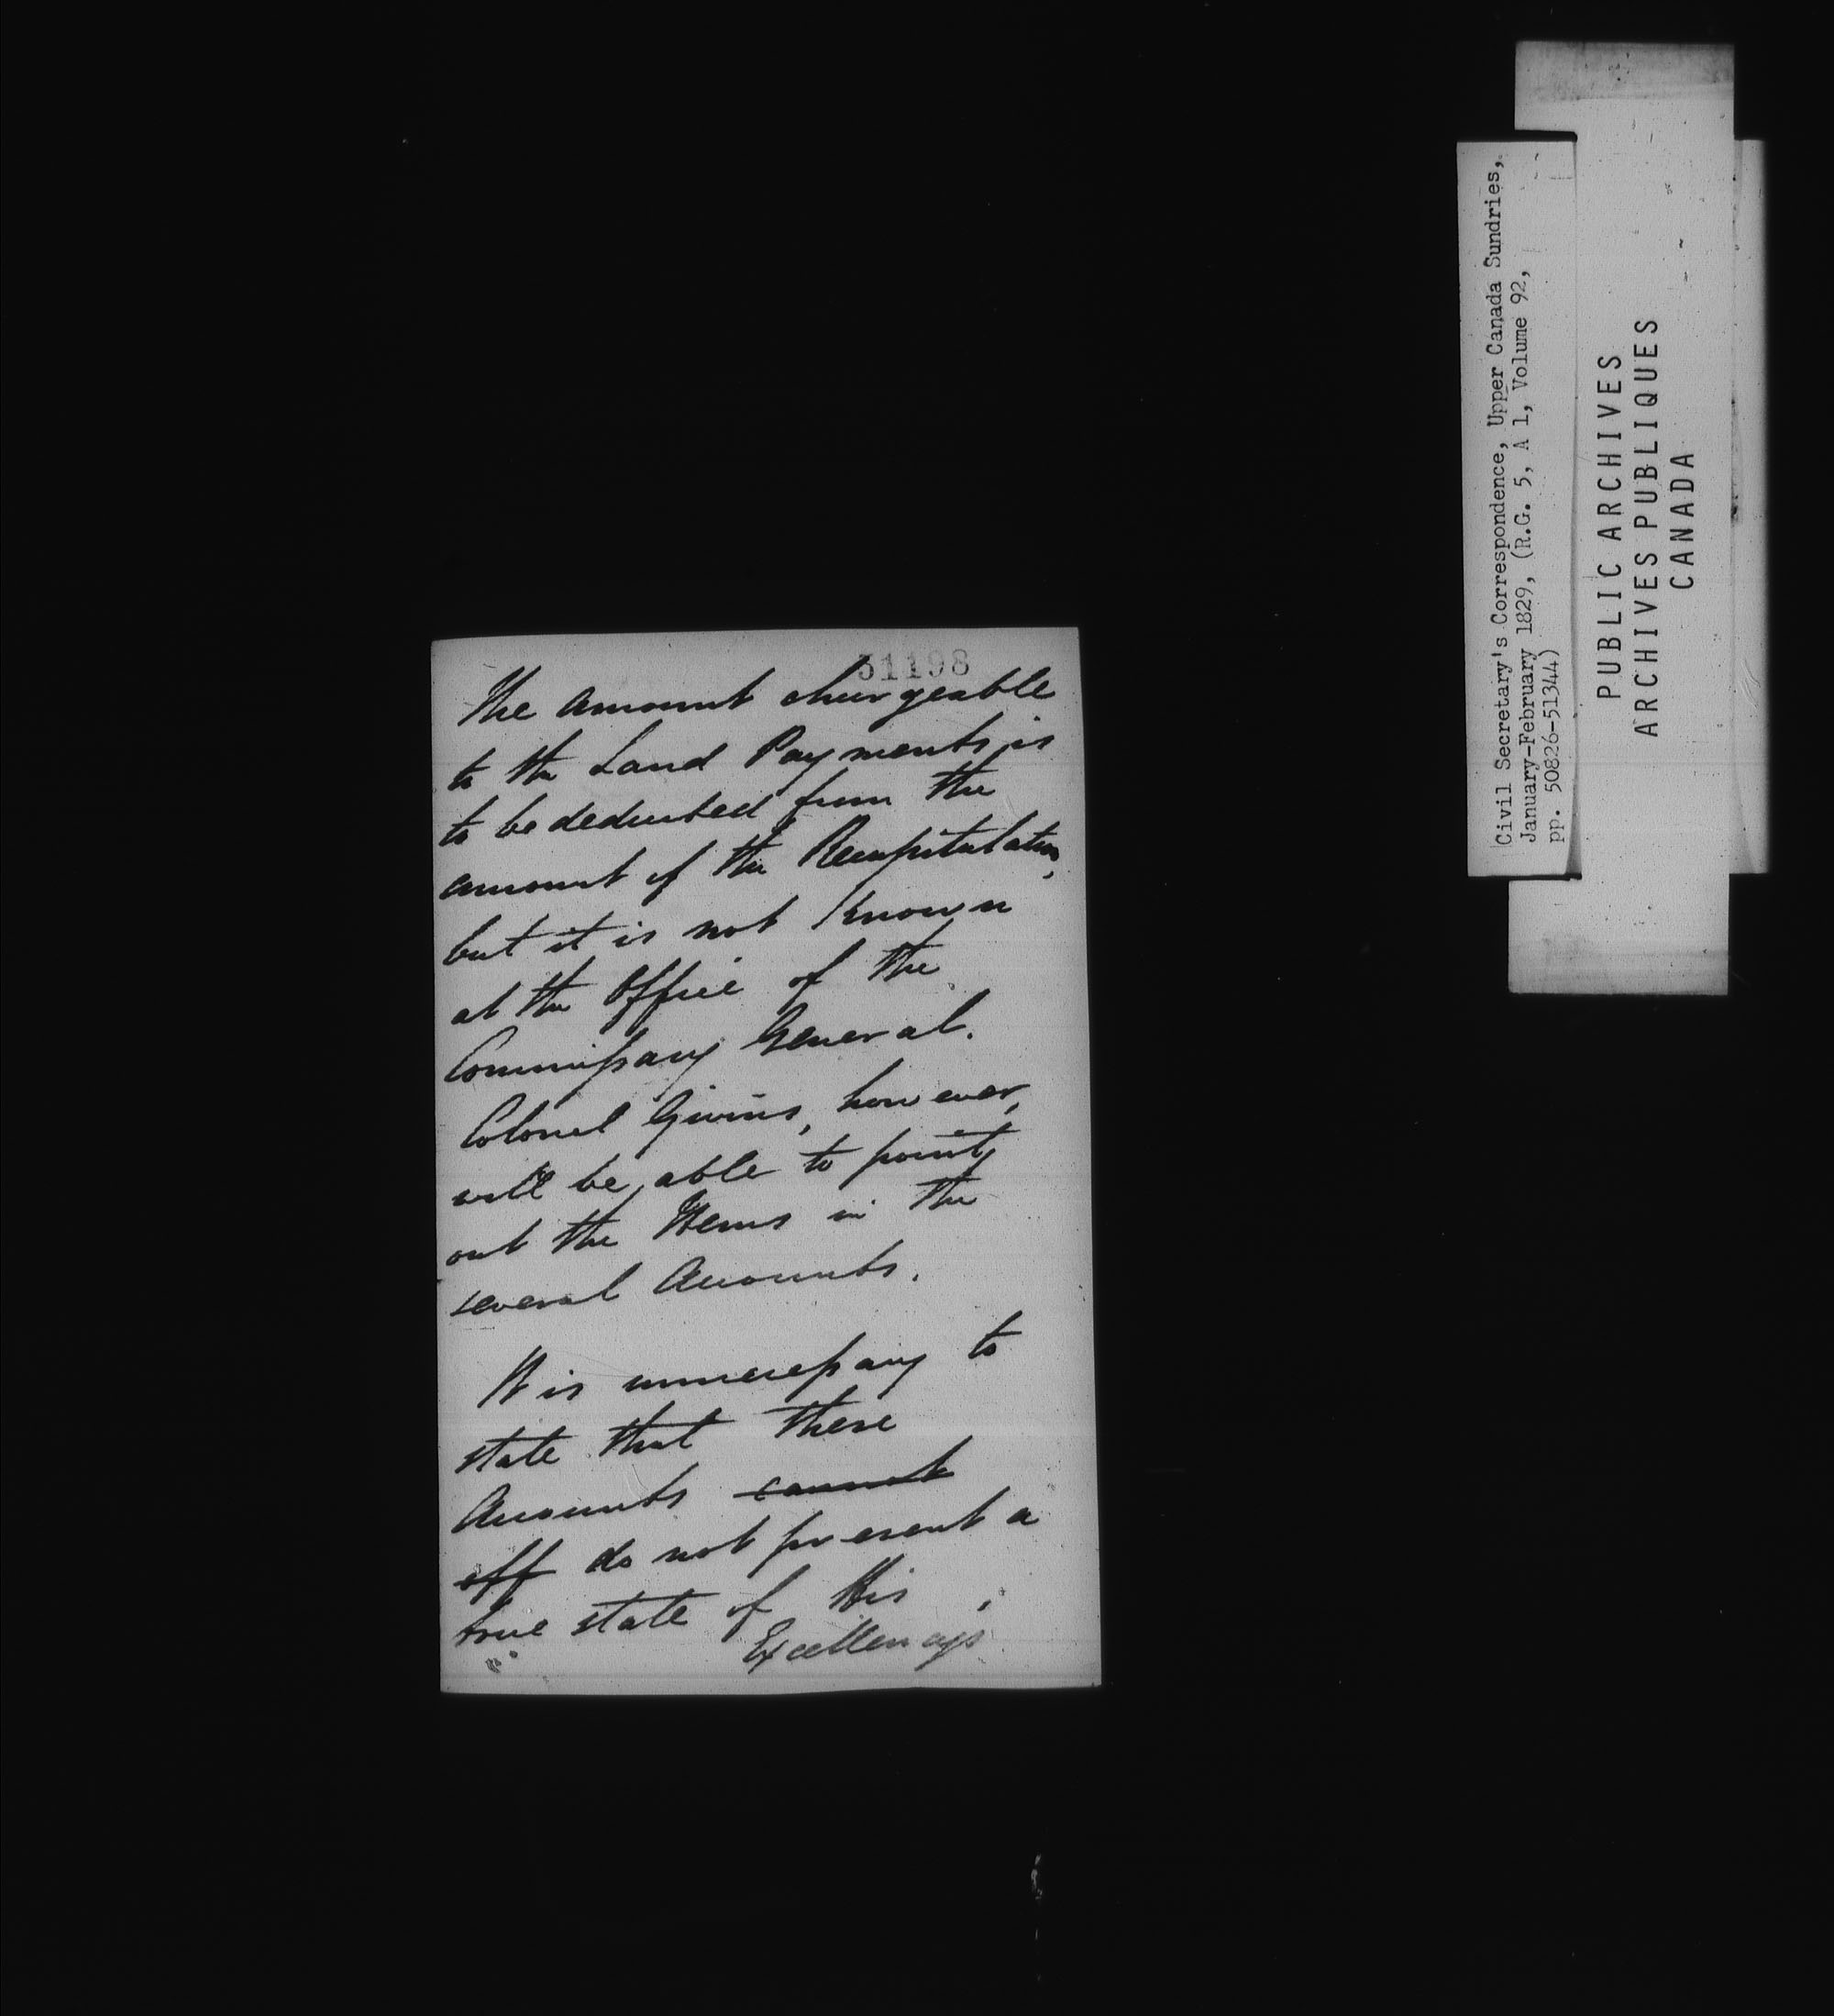 51198
The Amount chargeable
to the Land Payments is
to be deducted from the
amount of the Recapitulation,
but it is not known
at the Office of the
Commissary General.
Colonel Givins, however,
will be able to point
out the Items in the
several Accounts.
It is unnecessary to
state that these
Accounts cannot
off do not present a
true state of His
Excellencys
Civil Secretary's Correspondence, Upper Canada Sundries,
January-February 1829, (R.G. 5, A 1, Volume 92,
pp. 50826-51344)
PUBLIC ARCHIVES
ARCHIVES PUBLIQUES
CANADA